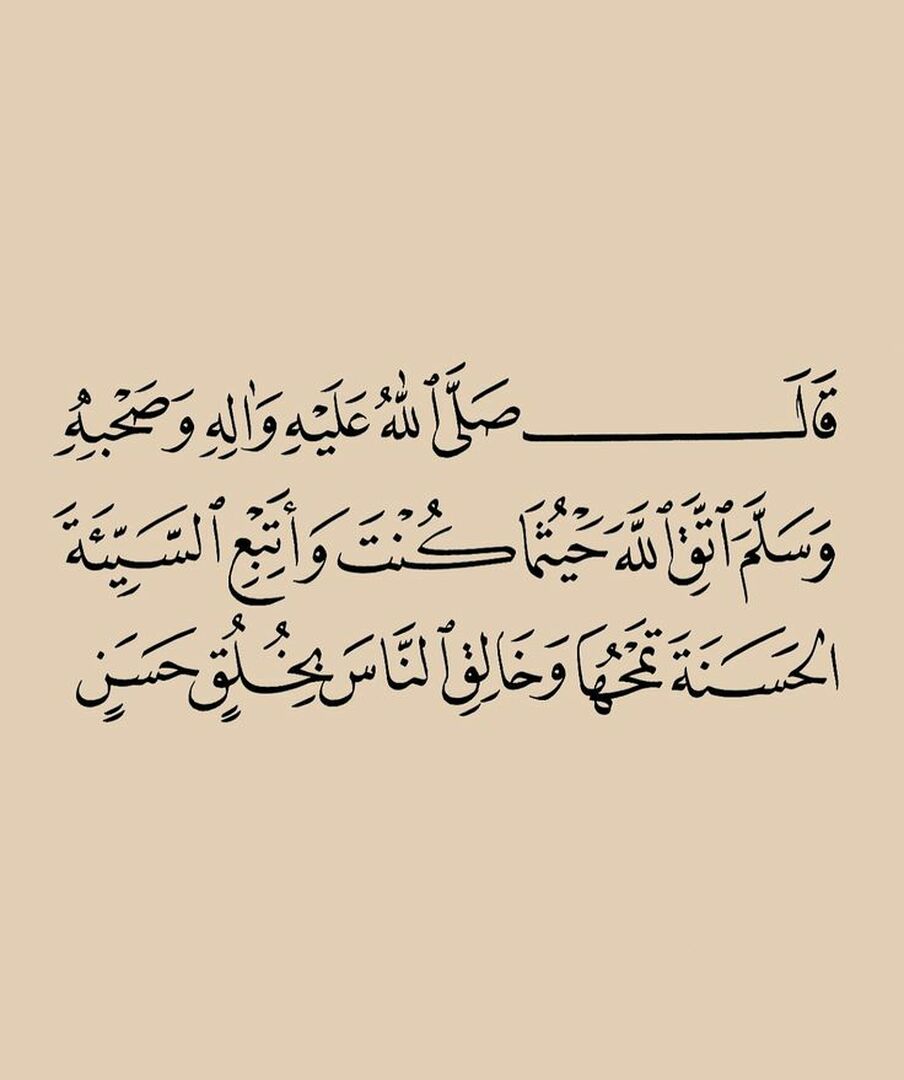 قَالَ صَلَّى ٱللّٰهُ عَلَيْهِ وَاٰلِهِ وَصَحْبِهِ
وَسَلَّمَ ٱتَّقِ ٱللّٰهَ حَيْثُمَا كُنْتَ وَأَتْبِعِ ٱلسَّيِّئَةَ
الحَسَنَةَ تَمْحُهَا وَخَالِقِ ٱلنَّاسَ بِخُلُقٍ حَسَنٍ